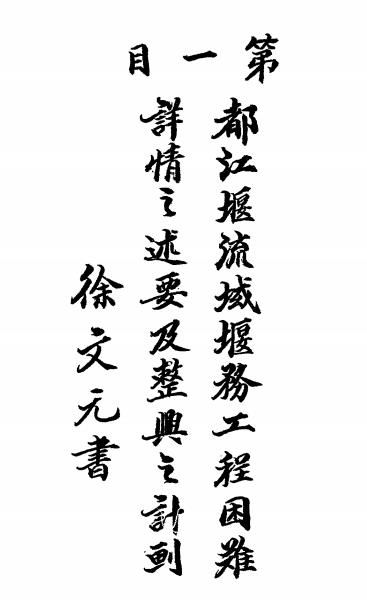 第一目
都江堰流域堰務工程困难
詳情之述要及整興之計劃
徐文元書